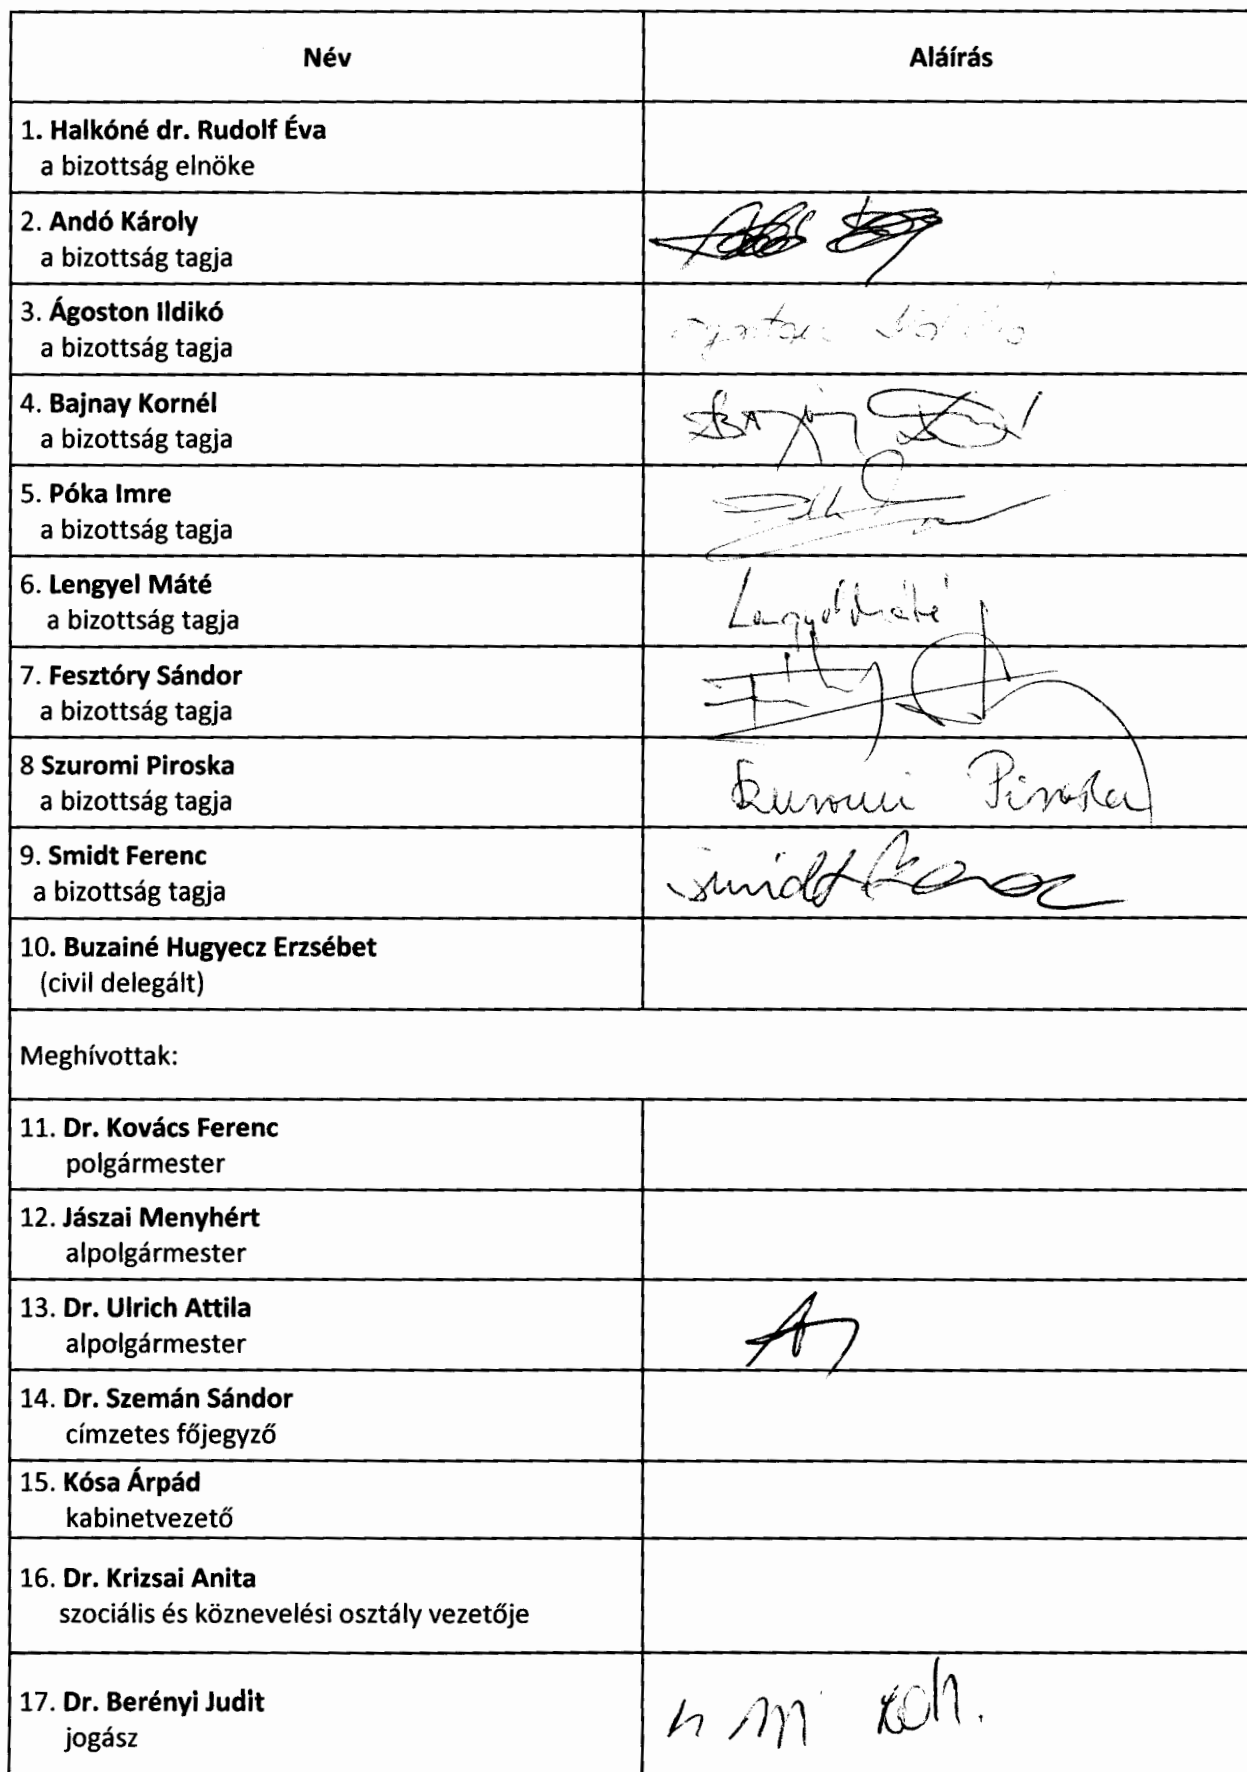 Név Aláírás
1. Halkóné dr. Rudolf Éva
a bizottság elnöke
2. Andó Károly
a bizottság tagja
3. Ágoston Ildikó
a bizottság tagja
4. Bajnay Kornél
a bizottság tagja
5. Póka Imre
a bizottság tagja
6. Lengyel Máté
a bizottság tagja
Lengyel Máté
7. Fesztóry Sándor
a bizottság tagja
8 Szuromi Piroska
a bizottság tagja
Szuromi Piroska
9. Smidt Ferenc
a bizottság tagja
Smidt Ferenc
10. Buzainé Hugyecz Erzsébet
(civil delegált)
Meghívottak:
11. Dr. Kovács Ferenc
polgármester
12. Jászai Menyhért
alpolgármester
13. Dr. Ulrich Attila
alpolgármester
14. Dr. Szemán Sándor
címzetes főjegyző
15. Kósa Árpád
kabinetvezető
16. Dr. Krizsai Anita
szociális és köznevelési osztály vezetője
17. Dr. Berényi Judit
jogász